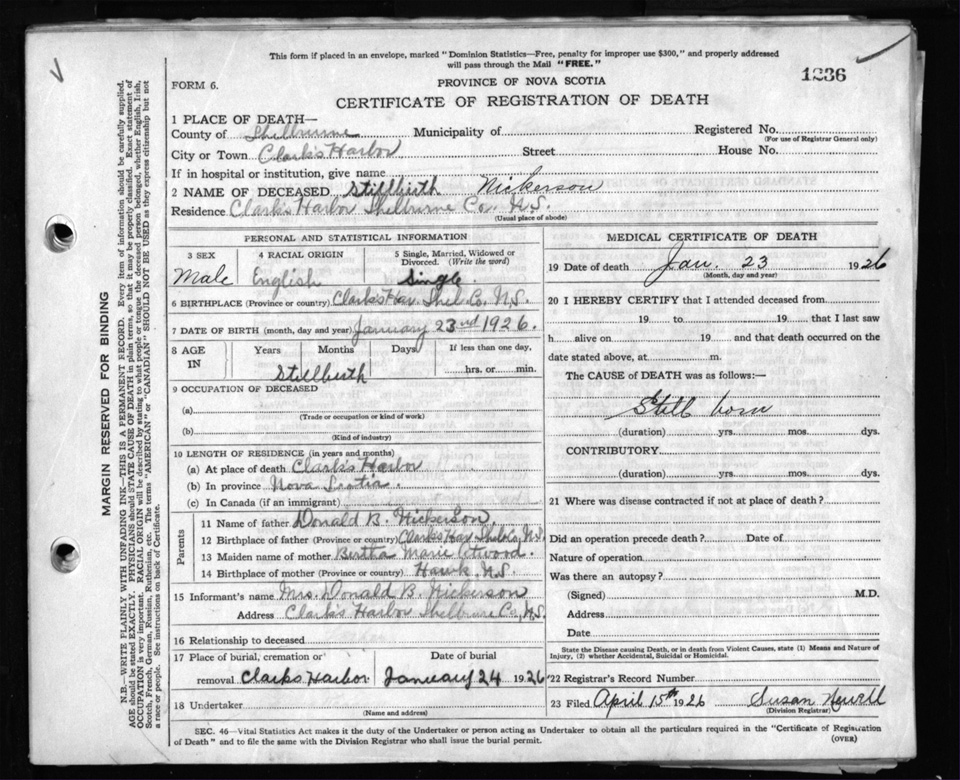 This form if placed in an envelope, marked "Dominion Statistics—Free, penalty for improper use $300," and properly addressed
will pass through the Mail "FREE."
1236
FORM 6.
PROVINCE OF NOVA SCOTIA
CERTIFICATE OF REGISTRATION OF DEATH
1 PLACE OF DEATH—
County of Shelburne Municipality of Registered No.
(For use of Registrar General only)
City or Town Clark's Harbor Street House No.
If in hospital or institution, give name
2 NAME OF DECEASED Stillbirth Nickerson
Residence Clark's Harbor Shelburne Co. N.S.
(Usual place of abode)
PERSONAL AND STATISTICAL INFORMATION
3 SEX 4 RACIAL ORIGIN 5 Single, Married, Widowed or
Divorced. (Write the word)
Male English Single.
6 BIRTHPLACE (Province or country) Clark's Har. Shel. Co. N.S.
7 DATE OF BIRTH (month, day and year) January 23rd 1926.
8 AGE IN Years Months Days If less than one day,
Stillbirth hrs. or min.
9 OCCUPATION OF DECEASED
(a)
(Trade or occupation or kind of work)
(b)
(Kind of industry)
10 LENGTH OF RESIDENCE (in years and months)
(a) At place of death Clark's Harbor
(b) In province Nova Scotia.
(c) In Canada (if an immigrant)
Parents
11 Name of father Donald B. Nickerson
12 Birthplace of father (Province or country) Clark's Har. Shelb. Co, N.S.
13 Maiden name of mother Bertha Marie Atwood.
14 Birthplace of mother (Province or country) Hawk N.S.
15 Informant's name Mrs. Donald B. Nickerson
Address Clark's Harbor Shelburne Co, N.S.
16 Relationship to deceased
17 Place of burial, cremation or Date of burial
removal Clarks Harbor January 24 1926
18 Undertaker
(Name and address)
MEDICAL CERTIFICATE OF DEATH
19 Date of death Jan. 23 1926
(Month, day and year)
20 I HEREBY CERTIFY that I attended deceased from
19 to 19 that I last saw
h alive on 19 and that death occurred on the
date stated above, at m.
The CAUSE of DEATH was as follows:—
Still born
(duration) yrs. mos. dys.
CONTRIBUTORY
(duration) yrs. mos. dys.
21 Where was disease contracted if not at place of death?
Did an operation precede death? Date of
Nature of operation
Was there an autopsy?
(Signed) M.D.
Address
Date
State the Disease causing Death, or in death from Violent Causes, state (1) Means and Nature of
Injury, (2) whether Accidental, Suicidal or Homicidal.
22 Registrar's Record Number
23 Filed April 15th 1926 Susan Newell
(Division Registrar)
SEC. 46—Vital Statistics Act makes it the duty of the Undertaker or person acting as Undertaker to obtain all the particulars required in the "Certificate of Registration
of Death" and to file the same with the Division Registrar who shall issue the burial permit.
(OVER)
MARGIN RESERVED FOR BINDING
N.B.—WRITE PLAINLY WITH UNFADING INK—THIS IS A PERMANENT RECORD. Every item of information should be carefully supplied.
AGE should be stated EXACTLY. PHYSICIANS should STATE CAUSE OF DEATH in plain terms, so that it may be properly classified. Exact statement of
OCCUPATION is very important. RACIAL ORIGIN will be described by stating to what people or tongue the deceased person belonged, whether English, Irish,
Scotch, French, German, Russian, Ruthenian, etc. The terms "AMERICAN" or "CANADIAN" SHOULD NOT BE USED as they express citizenship but not
a race or people. See instructions on back of Certificate.